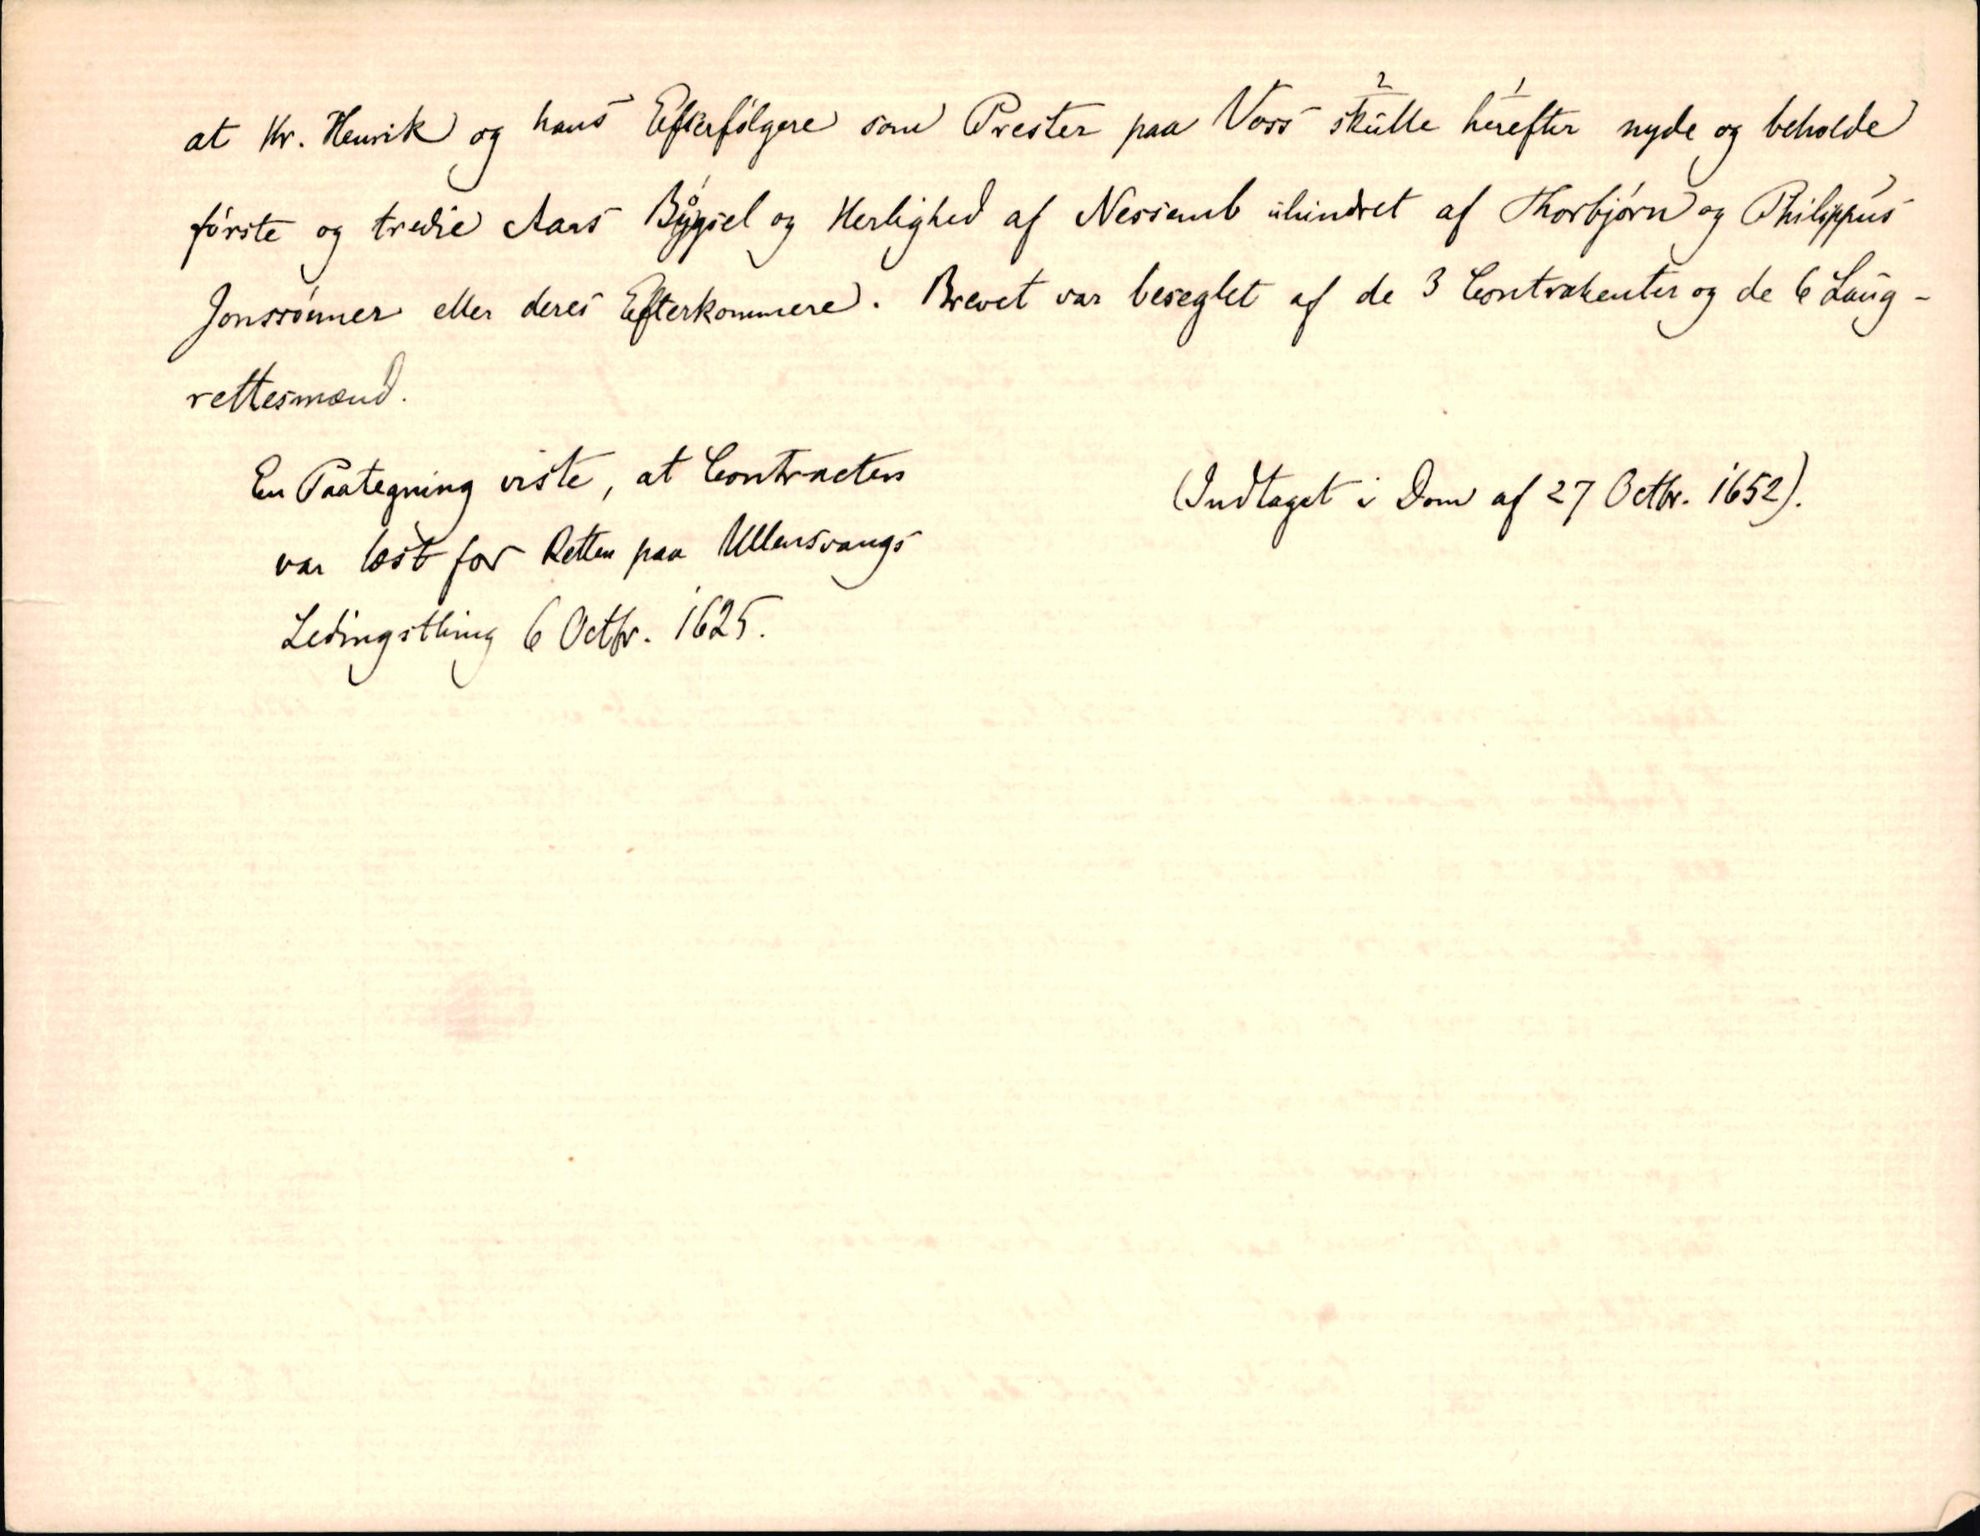 at Hr. Henrik og hans Efterfølgere som Prester paa Voss skulle herefter nyde og beholde
første og tredie Aars Bygsel og Herlighed af Nessemb uhindret af Thorbjørn og Philippus
Jonssønner eller deres Efterkommere. Brevet var beseglet af de 3 Contrahenter og de 6 Laug-
rettesmænd.
En Paategning viste, at Contracten
var læst for Retten paa Ullensvangs
Ledingsthing 6 Octbr. 1625.
(Indtaget i Dom af 27 Octbr. 1652).